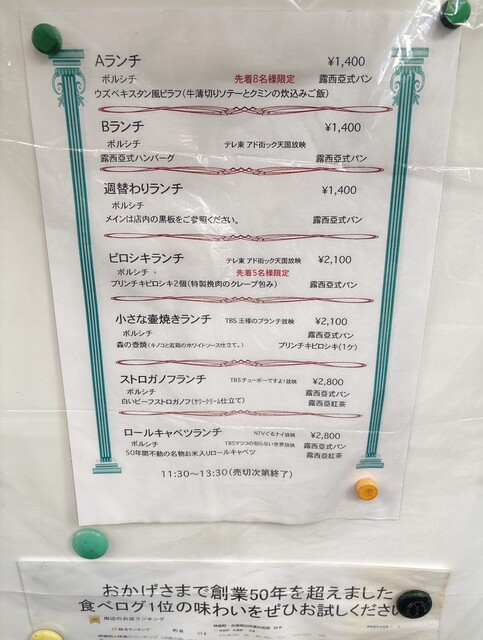 Aランチ ¥1,400
ボルシチ 先着8名様限定 露西亞式パン
ウズベキスタン風ピラフ(牛薄切りソテーとクミンの炊込みご飯)
Bランチ ¥1,400
ボルシチ テレ東 アド街ック天国放映
露西亞式ハンバーグ 露西亞式パン
週替わりランチ ¥1,400
ボルシチ
メインは店内の黒板をご参照ください。 露西亞式パン
ピロシキランチ テレ東 アド街ック天国放映 ¥2,100
ボルシチ 先着5名様限定
ブリンチキピロシキ2個(特製挽肉のクレープ包み) 露西亞式パン
小さな壷焼きランチ TBS 王様のブランチ放映 ¥2,100
ボルシチ 露西亞式パン
森の壺焼(キノコと若鶏のホワイトソース仕立て。) ブリンチキピロシキ(1ケ)
ストロガノフランチ TBSチューボーですよ!放映 ¥2,800
ボルシチ 露西亞式パン
白いビーフストロガノフ(サワークリーム仕立て) 露西亞紅茶
ロールキャベツランチ NTVぐるナイ放映 ¥2,800
ボルシチ TBSマツコの知らない世界放映 露西亞式パン
50年間不動の名物お米入りロールキャベツ 露西亞紅茶
11:30～13:30(売切次第終了)
おかげさまで創業50年を超えました
食べログ1位の味わいをぜひお試しくださ
周辺のお店ランキング